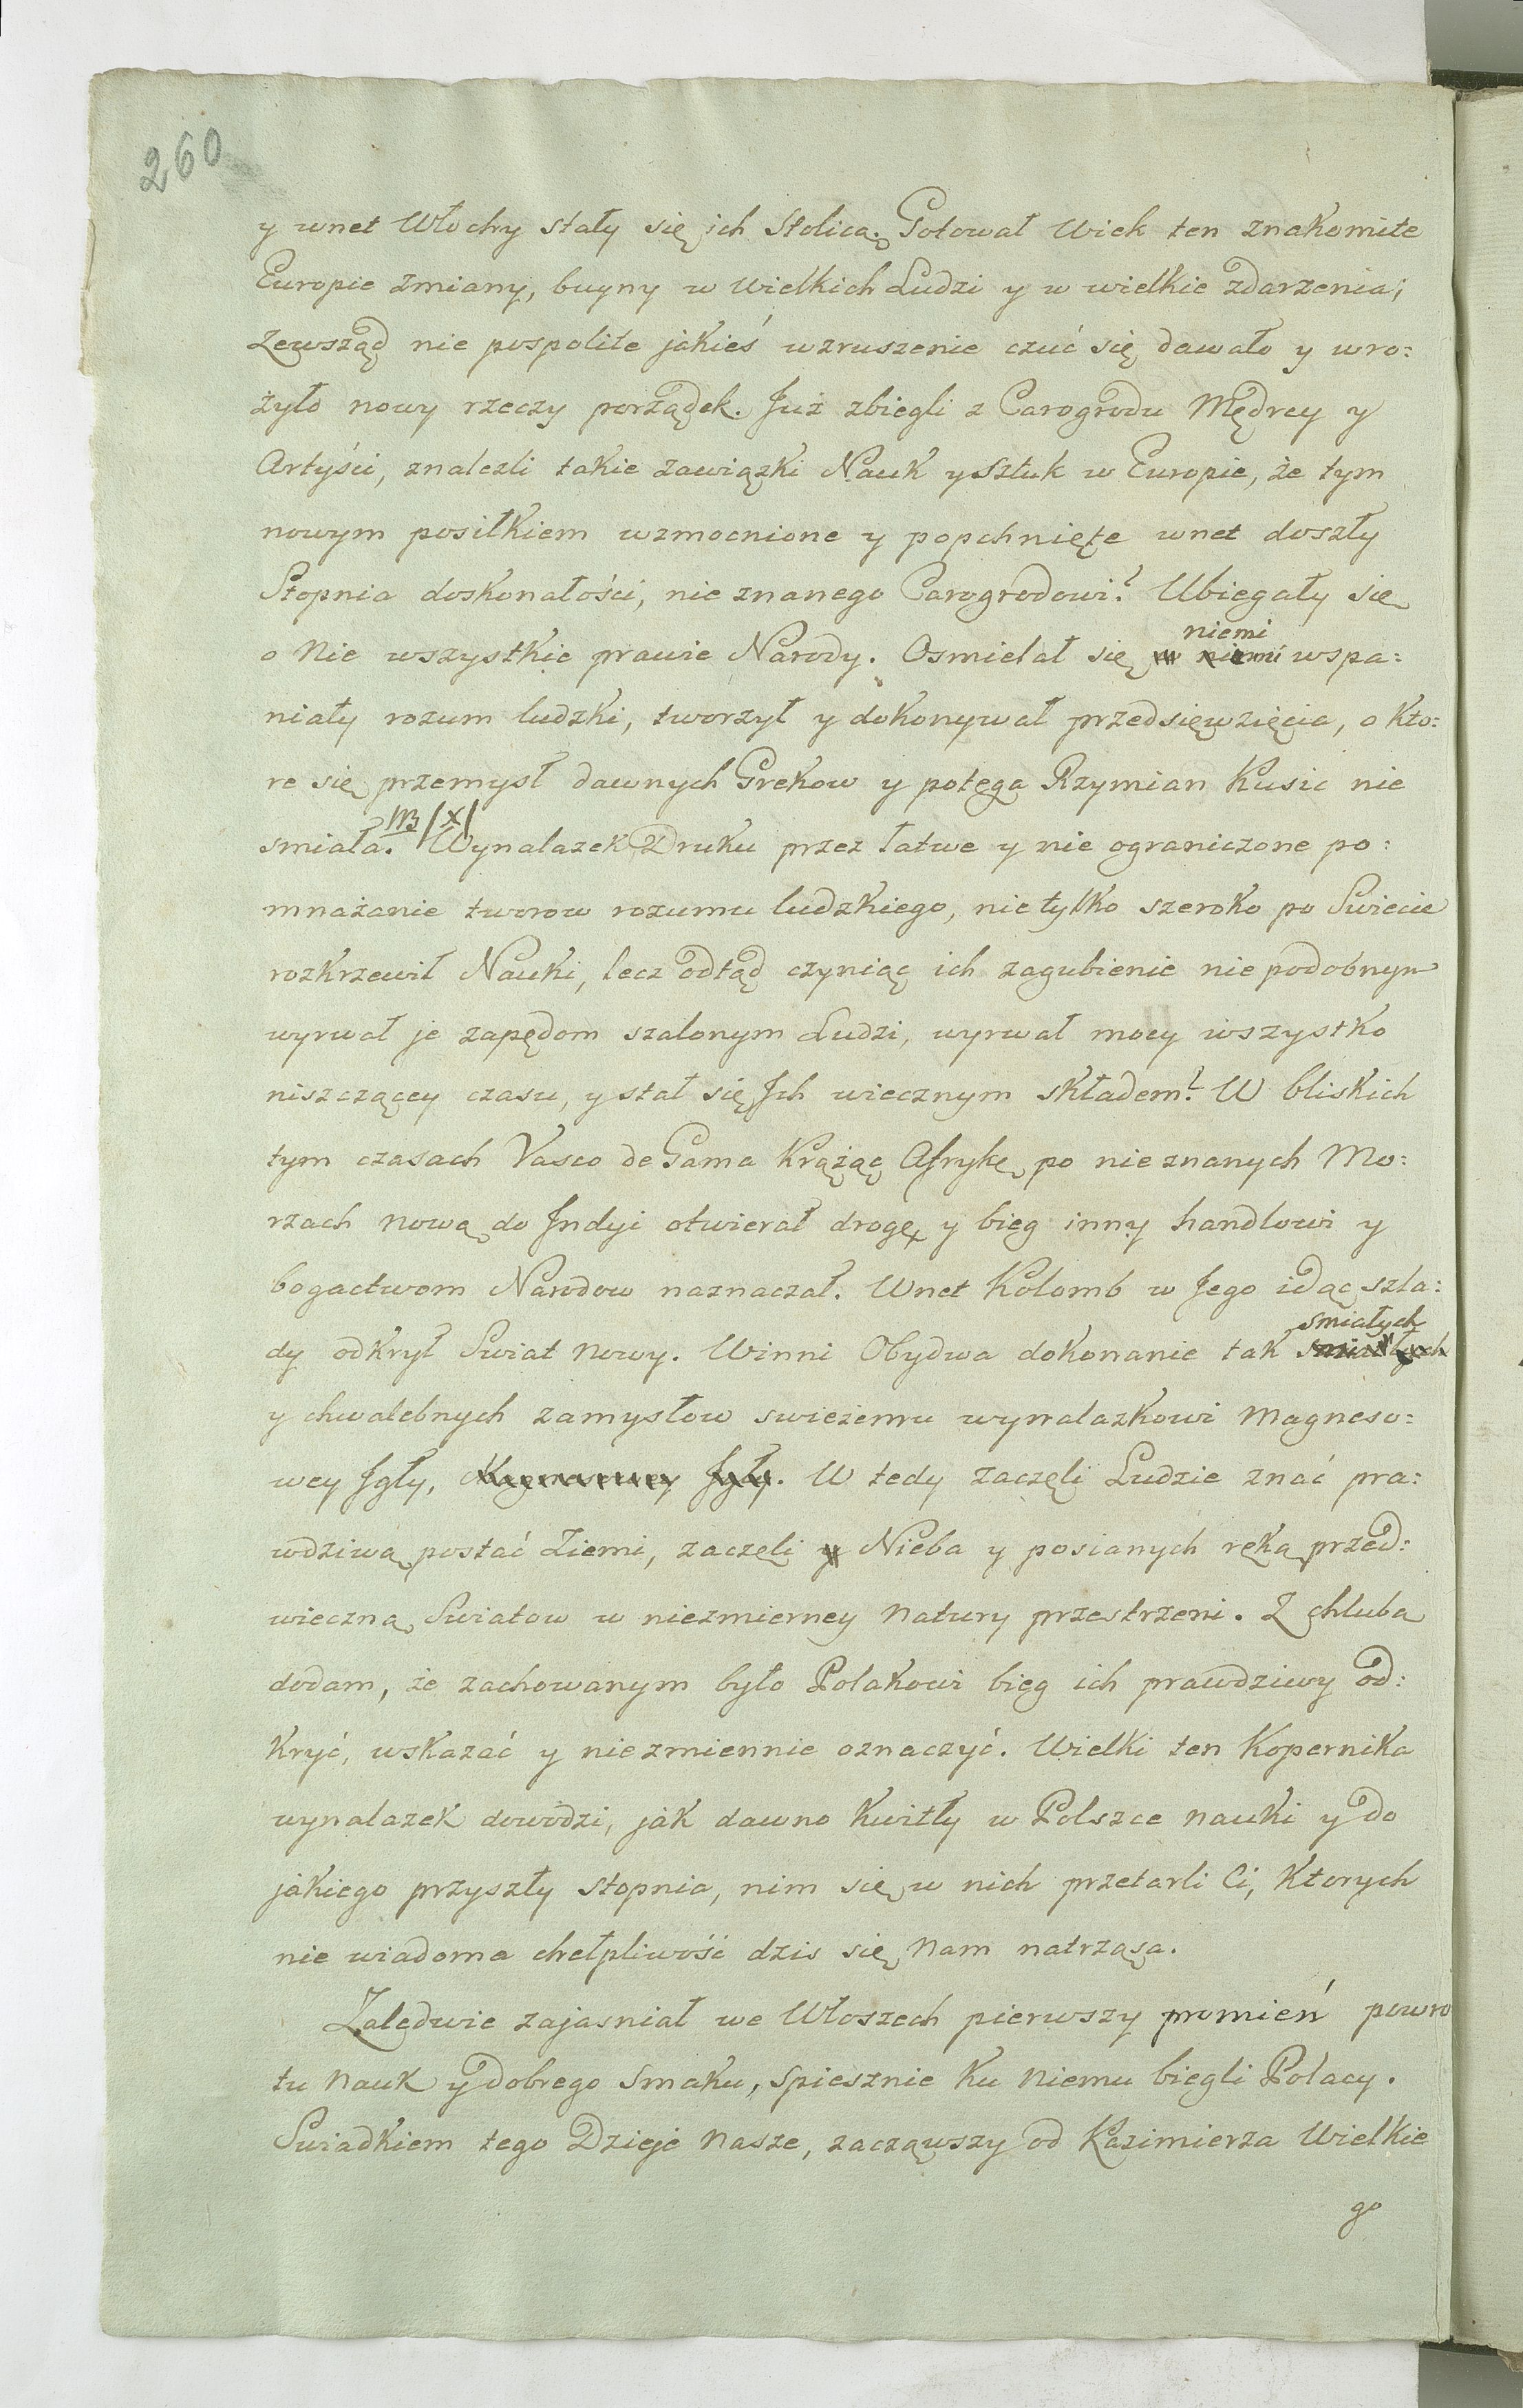 260
y wnet Włochy stały się ich Stolicą. Gotował Wiek ten znakomite
Europie zmiany, buyny w Wielkich Ludzi y w wielkie zdarzenia;
Zewsząd nie pospolite jakieś wzruszenie czuć się dawało y wro:
żyło nowy rzeczy porządek. Już zbiegli z Carogrodu Mędrcy y
Artyści, znalezli takie zawiązki Nauk y Sztuk w Europie, że tym
nowym posiłkiem wzmocnione y popchnięte wnet doszły
Stopnia doskonałości, nie znanego Carogrodowi. Ubiegały się
niemi
o Nie wszystkie prawie Narody. Osmielał się w niemi wspa:
niały rozum ludzki, tworzył y dokonywał przedsięwzięcia, o kto:
re się przemysł dawnych Grekow y potęga Rzymian kusic nie
smiała. /X/ Wynalazek Druku przez łatwe y nie ograniczone po:
mnażanie tworow rozumu ludzkiego, nie tylko szeroko po Swiecie
rozkrzewił Nauki, lecz odtąd czyniąc ich zagubienie nie podobnym
wyrwał je zapędom szalonym Ludzi, wyrwał mocy wszystko
niszczącey czasu, y stał się Jch wiecznym składem. W bliskich
tym czasach Vasco de Gama krążąc Afrykę po nie znanych Mo:
rzach nową do Jndyi otwierał drogę y bieg inny handlowi y
bogactwom Narodow naznaczał. Wnet Kolomb w Jego idąc szla:
smiałych
dy odkrył Swiat nowy. Winni Obydwa dokonanie tak smiałych
y chwalebnych zamysłow swieżemu wynalazkowi Magneso:
wey Jgły, Magnesowey Jgły. W tedy zaczęli Ludzie znać pra:
wdziwą postać Ziemi, zaczęli y Nieba y posianych ręką przed:
wieczną Swiatow w niezmierney Natury przestrzeni. Z chlubą
dodam, że zachowanym było Polakowi bieg ich prawdziwy od:
kryć, wskazać y niezmiennie oznaczyć. Wielki ten Kopernika
wynalazek dowodzi, jak dawno kwitły w Polszce nauki y do
jakiego przyszły stopnia, nim się w nich przetarli Ci, ktorych
nie wiadoma chełpliwość dzis się nam natrząsa.
Zalędwie zajasniał we Włoszech pierwszy promień powro
tu Nauk y dobrego smaku, spiesznie ku niemu biegli Polacy.
Swiadkiem tego Dzieje nasze, zacząwszy od Kazimierza Wielkie
go